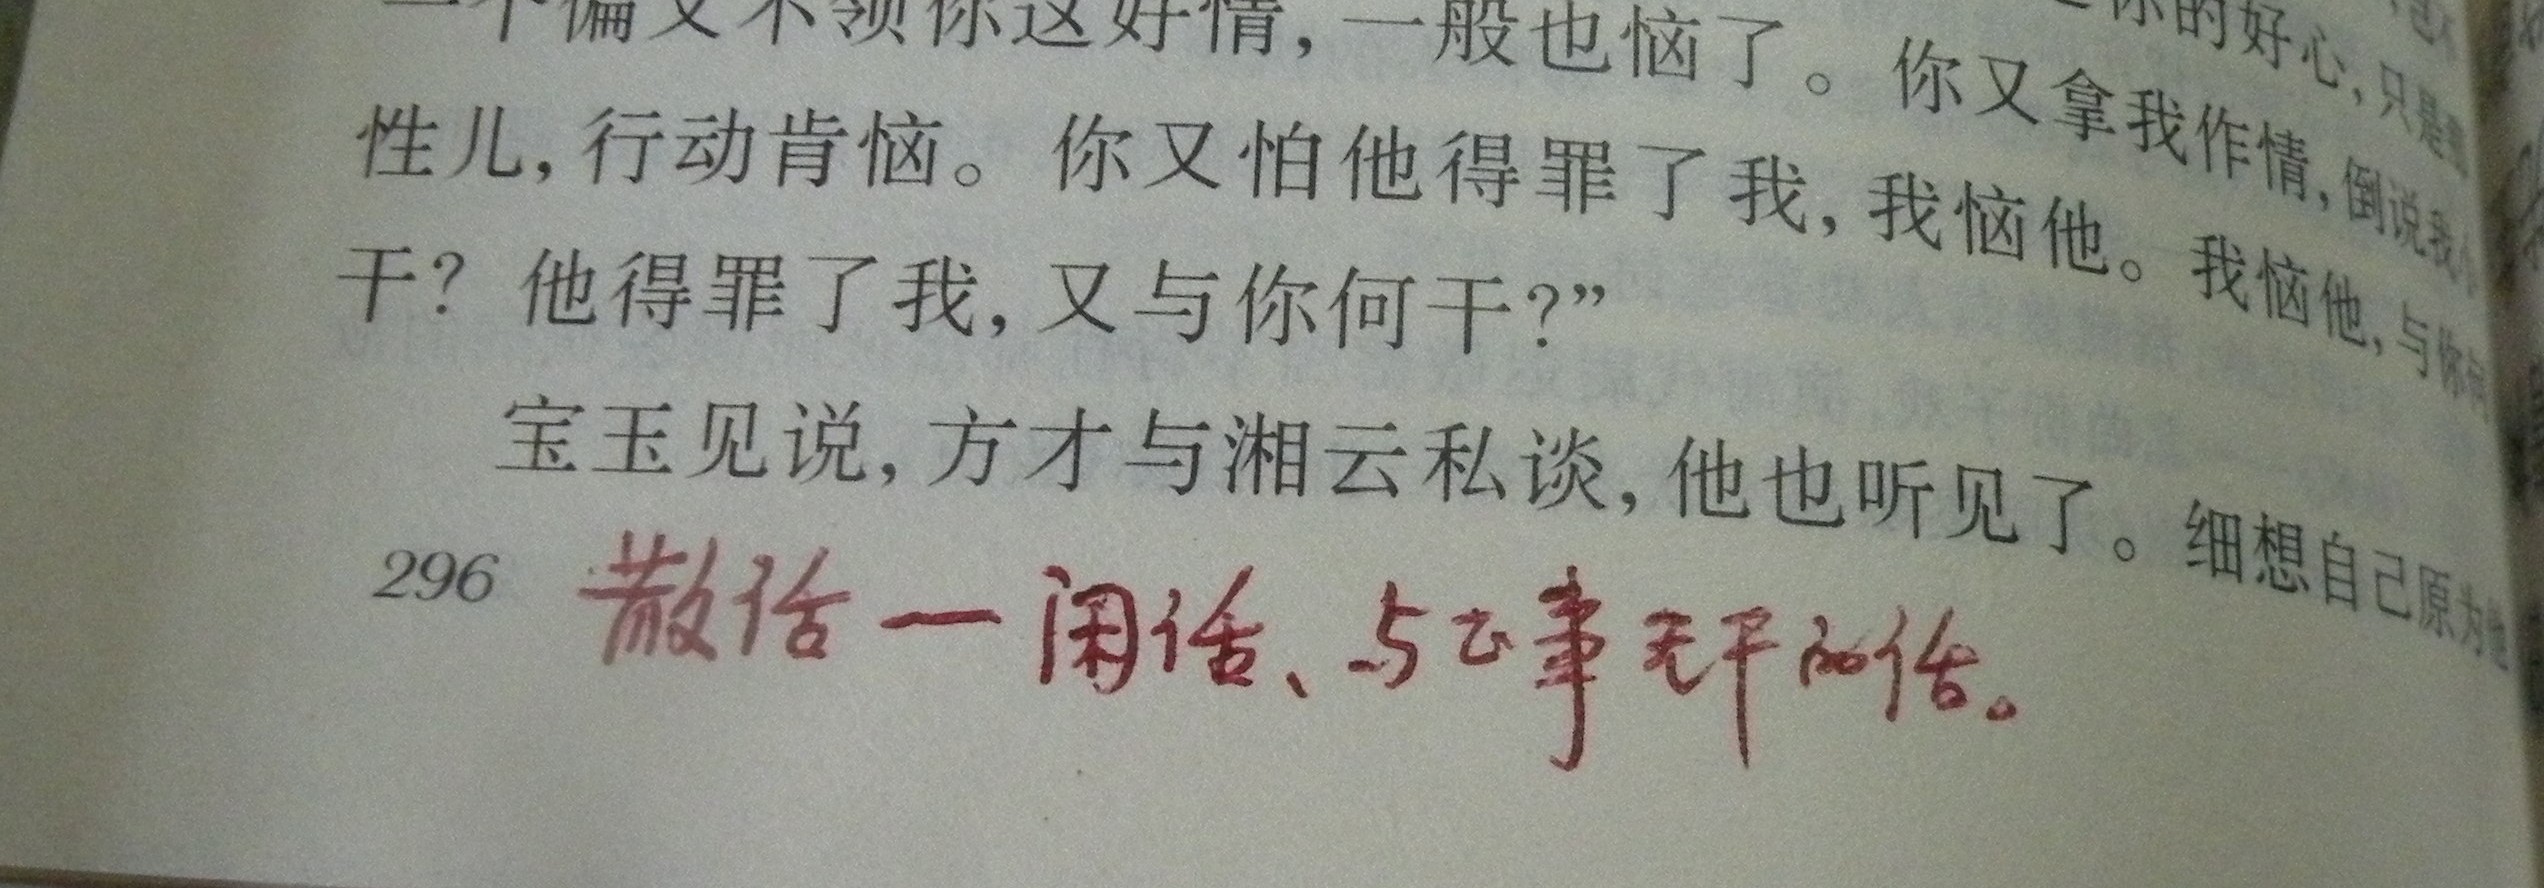 一个偏又不领你这好情，一般也恼了。你又拿我作情，倒说我
性儿，行动肯恼。你又怕他得罪了我，我恼他。我恼他，与你何
干？他得罪了我，又与你何干？”
宝玉见说，方才与湘云私谈，他也听见了。细想自己原为他
296
散话一闲话、与正事无干的话。
你的好心，只是